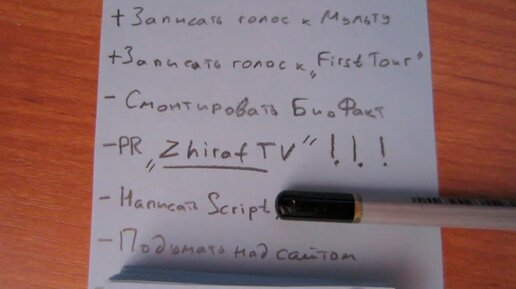 + Записать голос к Мульту
+ Записать голос к „First Tour"
- Смонтировать БиоФакт
- PR „Zhiraf TV" !!!
- Написать Script
- Подумать над сайтом